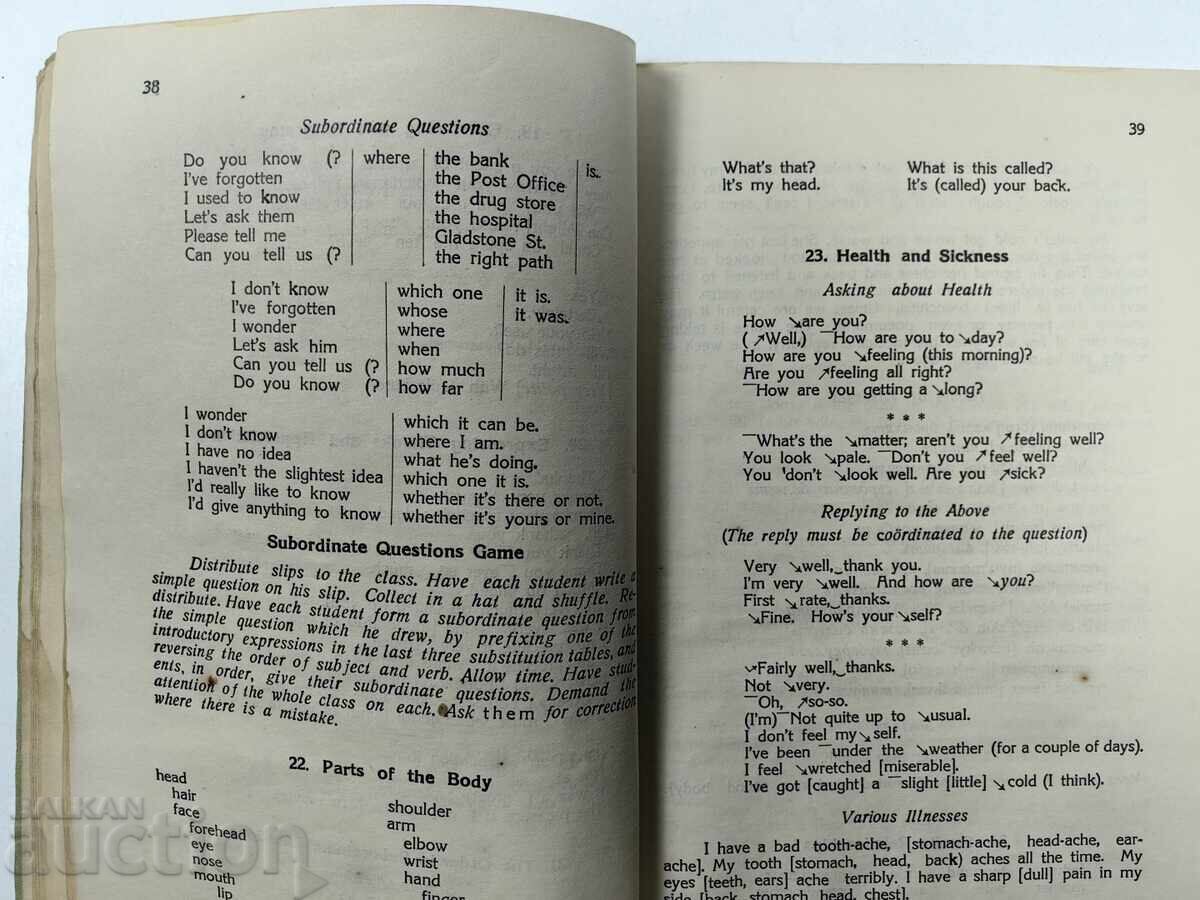 38
Subordinate Questions
Do you know (? where the bank is.
I've forgotten the Post Office
I used to know the drug store
Let's ask them the hospital
Please tell me Gladstone St.
Can you tell us (? the right path
I don't know which one it is.
I've forgotten whose it was.
I wonder where
Let's ask him when
Can you tell us (? how much
Do you know (? how far
I wonder which it can be.
I don't know where I am.
I have no idea what he's doing.
I haven't the slightest idea which one it is.
I'd really like to know whether it's there or not.
I'd give anything to know whether it's yours or mine.
Subordinate Questions Game
Distribute slips to the class. Have each student write a
simple question on his slip. Collect in a hat and shuffle. Re-
distribute. Have each student form a subordinate question from
the simple question which he drew, by prefixing one of the
introductory expressions in the last three substitution tables, and
reversing the order of subject and verb. Allow time. Have stud-
ents, in order, give their subordinate questions. Demand the
attention of the whole class on each. Ask them for correction
where there is a mistake.
22. Parts of the Body
head
hair
face
forehead
eye
nose
mouth
lip
shoulder
arm
elbow
wrist
hand
finger
39
What's that? What is this called?
It's my head. It's (called) your back.
23. Health and Sickness
Asking about Health
How ↘are you?
(↗Well,) ‾How are you to↘day?
How are you ↘feeling (this morning)?
Are you ↗feeling all right?
‾How are you getting a↘long?
* * *
‾What's the ↘matter; aren't you ↗feeling well?
You look ↘pale. ‾Don't you ↗feel well?
You 'don't ↘look well. Are you ↗sick?
Replying to the Above
(The reply must be coördinated to the question)
Very ↘well,‿thank you.
I'm very ↘well. And how are ↘you?
First ↘rate,‿thanks.
↘Fine. How's your ↘self?
* * *
⤻Fairly well,‿thanks.
Not ↘very.
‾Oh, ↗so-so.
(I'm) ‾Not quite up to ↘usual.
I don't feel my ↘self.
I've been ‾under the ↘weather (for a couple of days).
I feel ↘wretched [miserable].
I've got [caught] a ‾slight [little] ↘cold (I think).
Various Illnesses
I have a bad tooth-ache, [stomach-ache, head-ache, ear-
ache]. My tooth [stomach, head, back) aches all the time. My
eyes [teeth, ears] ache terribly. I have a sharp [dull] pain in my
side [back, stomach, head, chest].
BALKAN
auction